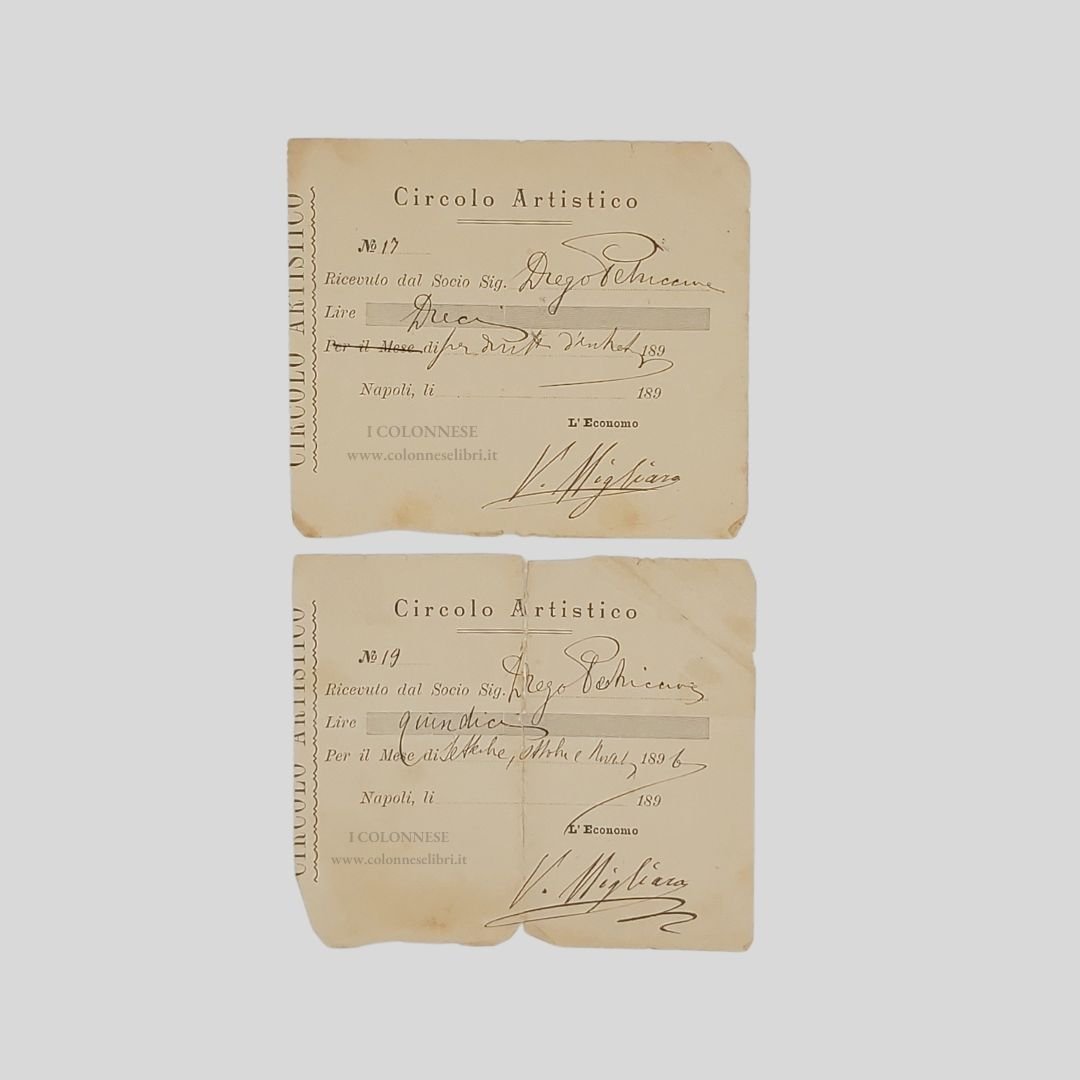 CIRCOLO ARTISTICO
Circolo Artistico
No 17
Ricevuto dal Socio Sig. Diego Petriccione
Lire Dieci
Per il Mese di per diritti d'entrat 189
Napoli, li 189
L'Economo
I COLONNESE
www.colonneselibri.it
V. Migliaro
CIRCOLO ARTISTICO
Circolo Artistico
No 19
Ricevuto dal Socio Sig. Diego Petriccione
Lire quindici
Per il Mese di Settembre, ottobre e 1896
Napoli, li 189
L'Economo
I COLONNESE
www.colonneselibri.it
V. Migliaro